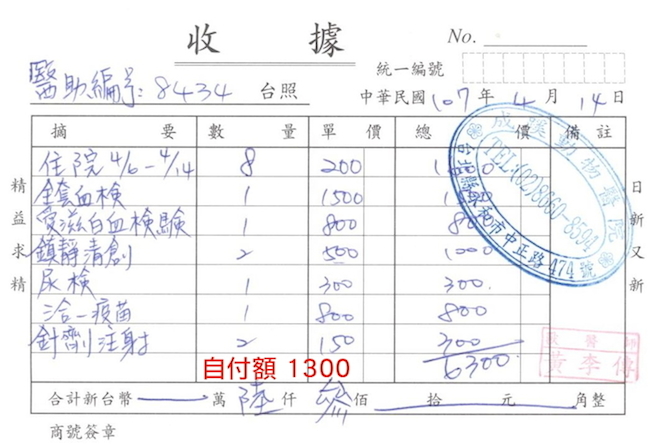 收據
No.
統一編號
醫助編号: 8434 台照
中華民國 107 年 4 月 14 日
摘要 數量 單價 總價 備註
住院 4/6-4/14 8 200
全套血檢 1 1500
愛滋白血檢驗 1 800 800
鎮靜清創 2 500 1000
尿檢 1 300 300.
三合一疫苗 1 800 800
針劑注射 2 150 300
6300
自付額 1300
合計新台幣 萬 陸 仟 參 佰 拾 元 角整
商號簽章
精益求精
日新又新
動物醫院
TEL:(02)8660-8594
和市中正路474號
獸醫師
黃李傳